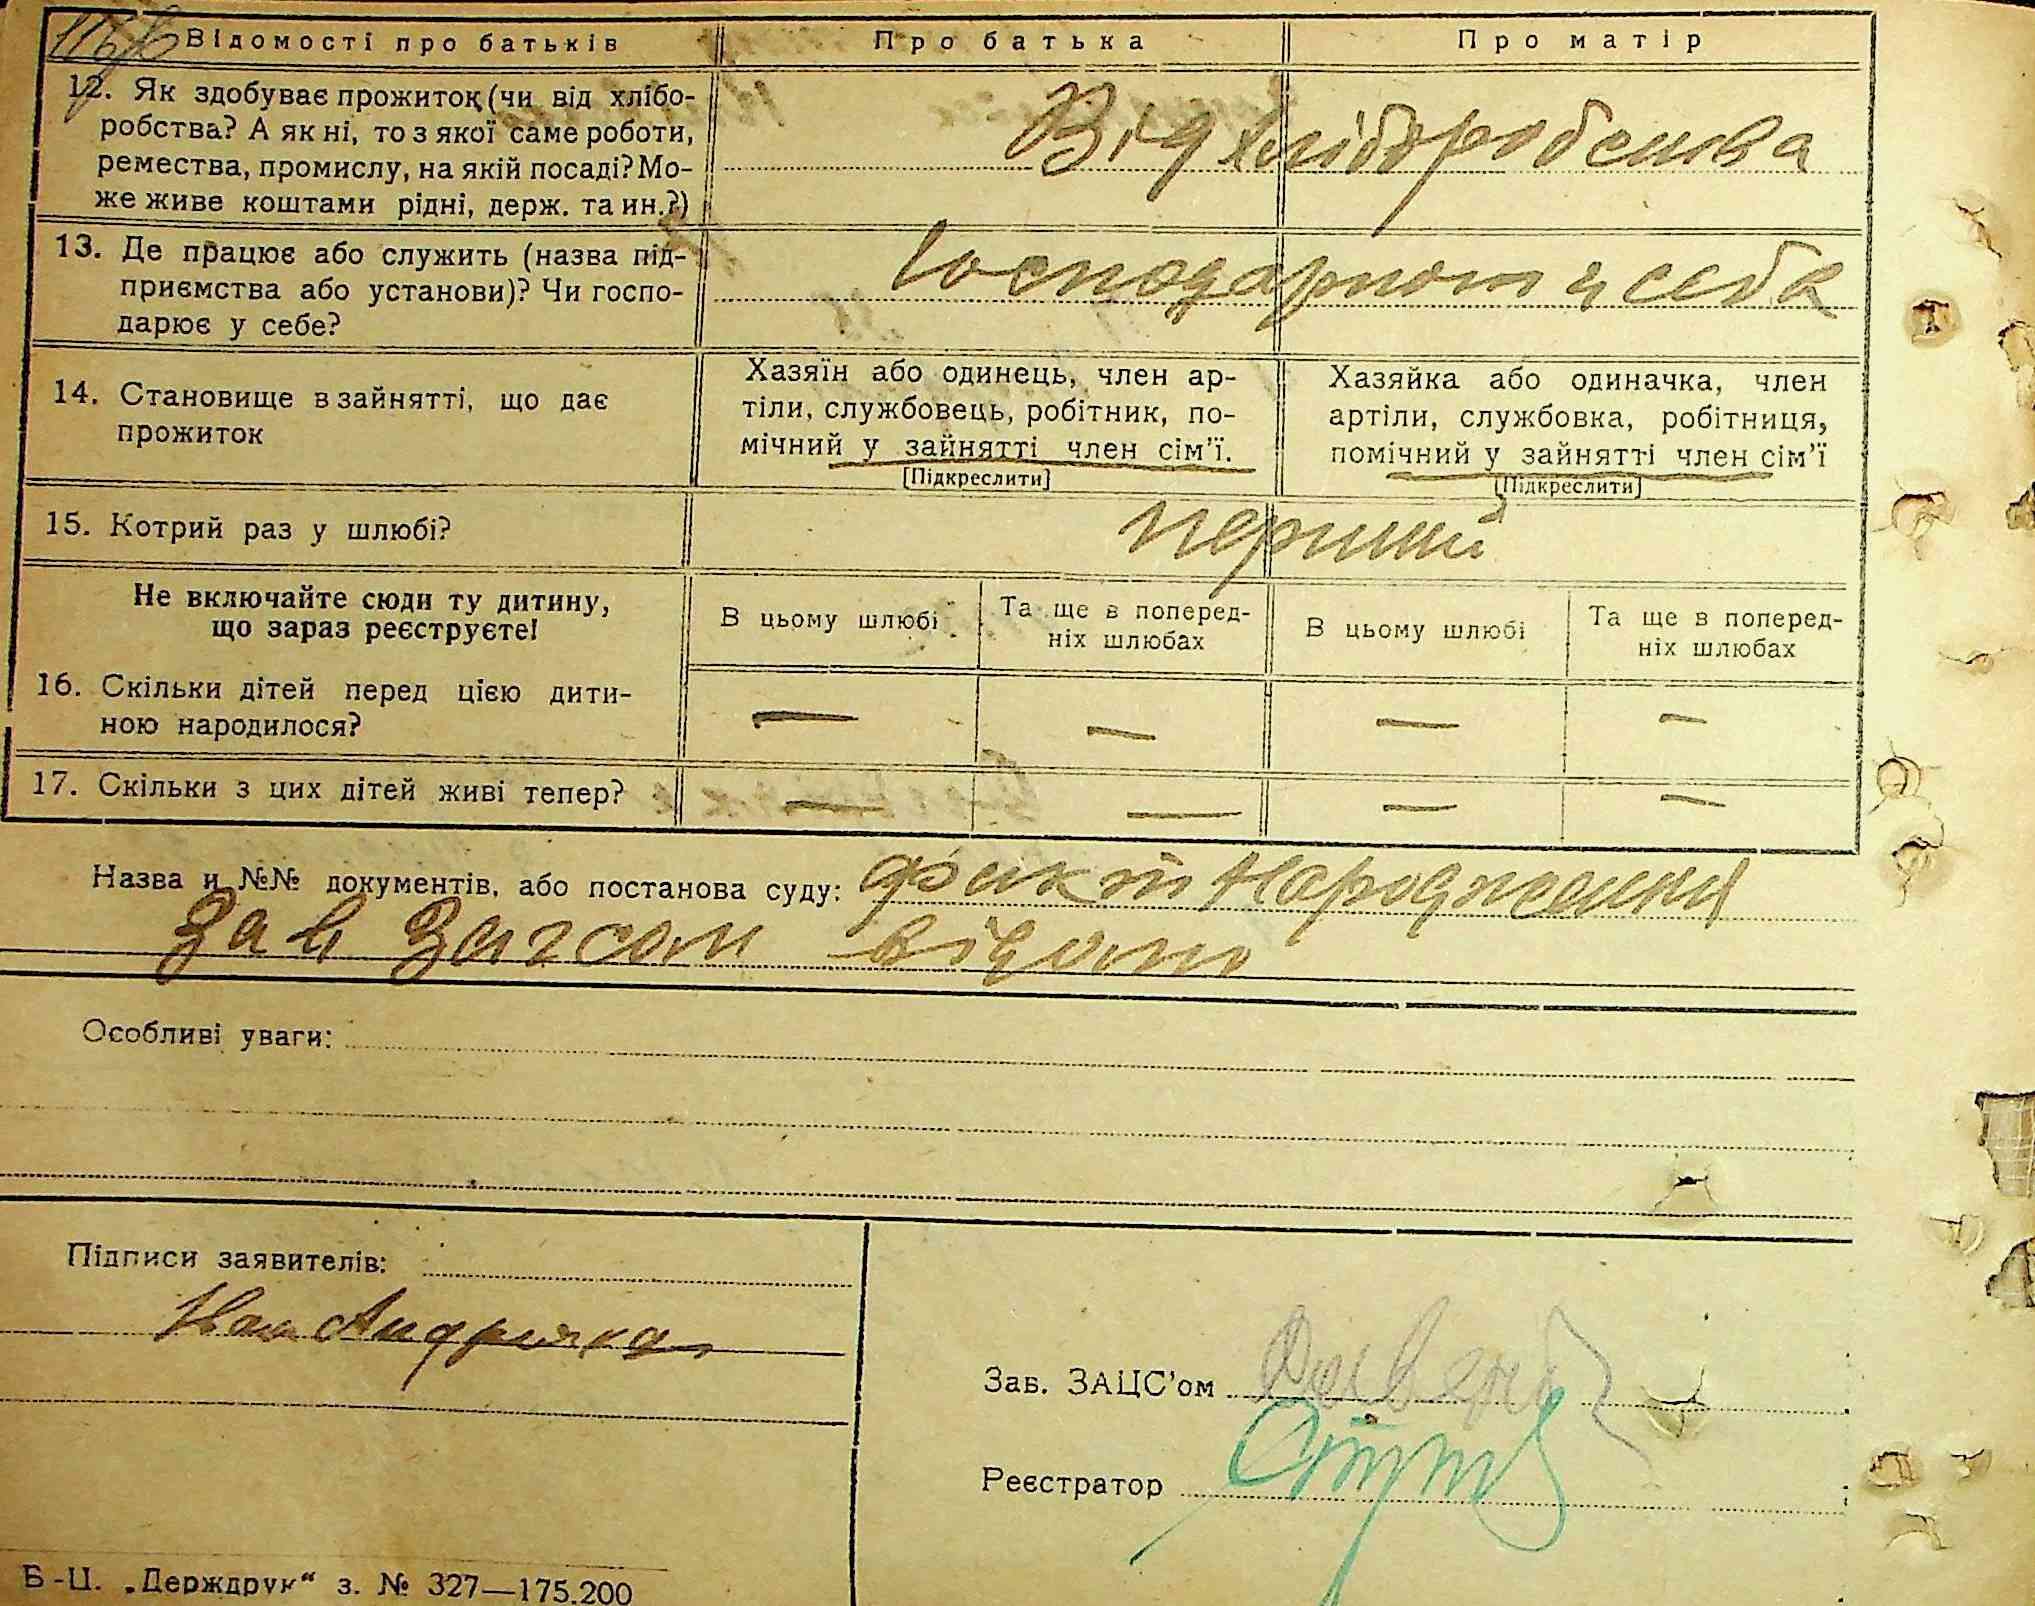 Відомості про батьків
Про батька
Про матір
12. Як здобуває прожиток (чи від хлібо-
робства? А як ні, то з якої саме роботи,
ремества, промислу, на якій посаді? Мо-
же живе коштами рідні, держ. та ин.?)
Від хліборобства
13. Де працює або служить (назва під-
приємства або установи)? Чи госпо-
дарює у себе?
у себе
14. Становище в зайнятті, що дає
прожиток
Хазяїн або одинець, член ар-
тіли, службовець, робітник, по-
мічний у зайнятті член сім'ї.
[Підкреслити]
Хазяйка або одиначка, член
артіли, службовка, робітниця,
помічний у зайнятті член сім'ї
[Підкреслити]
15. Котрий раз у шлюбі?
перший
Не включайте сюди ту дитину,
що зараз реєструєте!
В цьому шлюбі
Та ще в поперед-
ніх шлюбах
В цьому шлюбі
Та ще в поперед-
ніх шлюбах
16. Скільки дітей перед цією дити-
ною народилося?
— — — —
17. Скільки з цих дітей живі тепер?
— — — —
Назва и №№ документів, або постанова суду: факт народження
Зав Загсом відом
Особливі уваги:
Підписи заявителів:
Зав. ЗАЦС'ом
Реєстратор
Б-Ц. „Держдрук" з. № 327—175.200